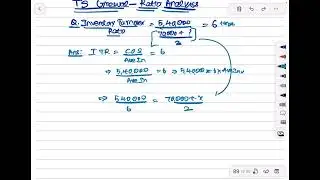 TS Grewal - Ratio Analysis
Q. Inventory Turnover Ratio = 5,40,000 / (70,000 + ?)/2 = 6 times
Ans: ITR = COS / Ave In = 6
⇒ 5,40,000 / Ave In = 6 ⇒ 5,40,000 = 6 x Ave Inv
⇒ 5,40,000 / 6 = 70,000 + x / 2